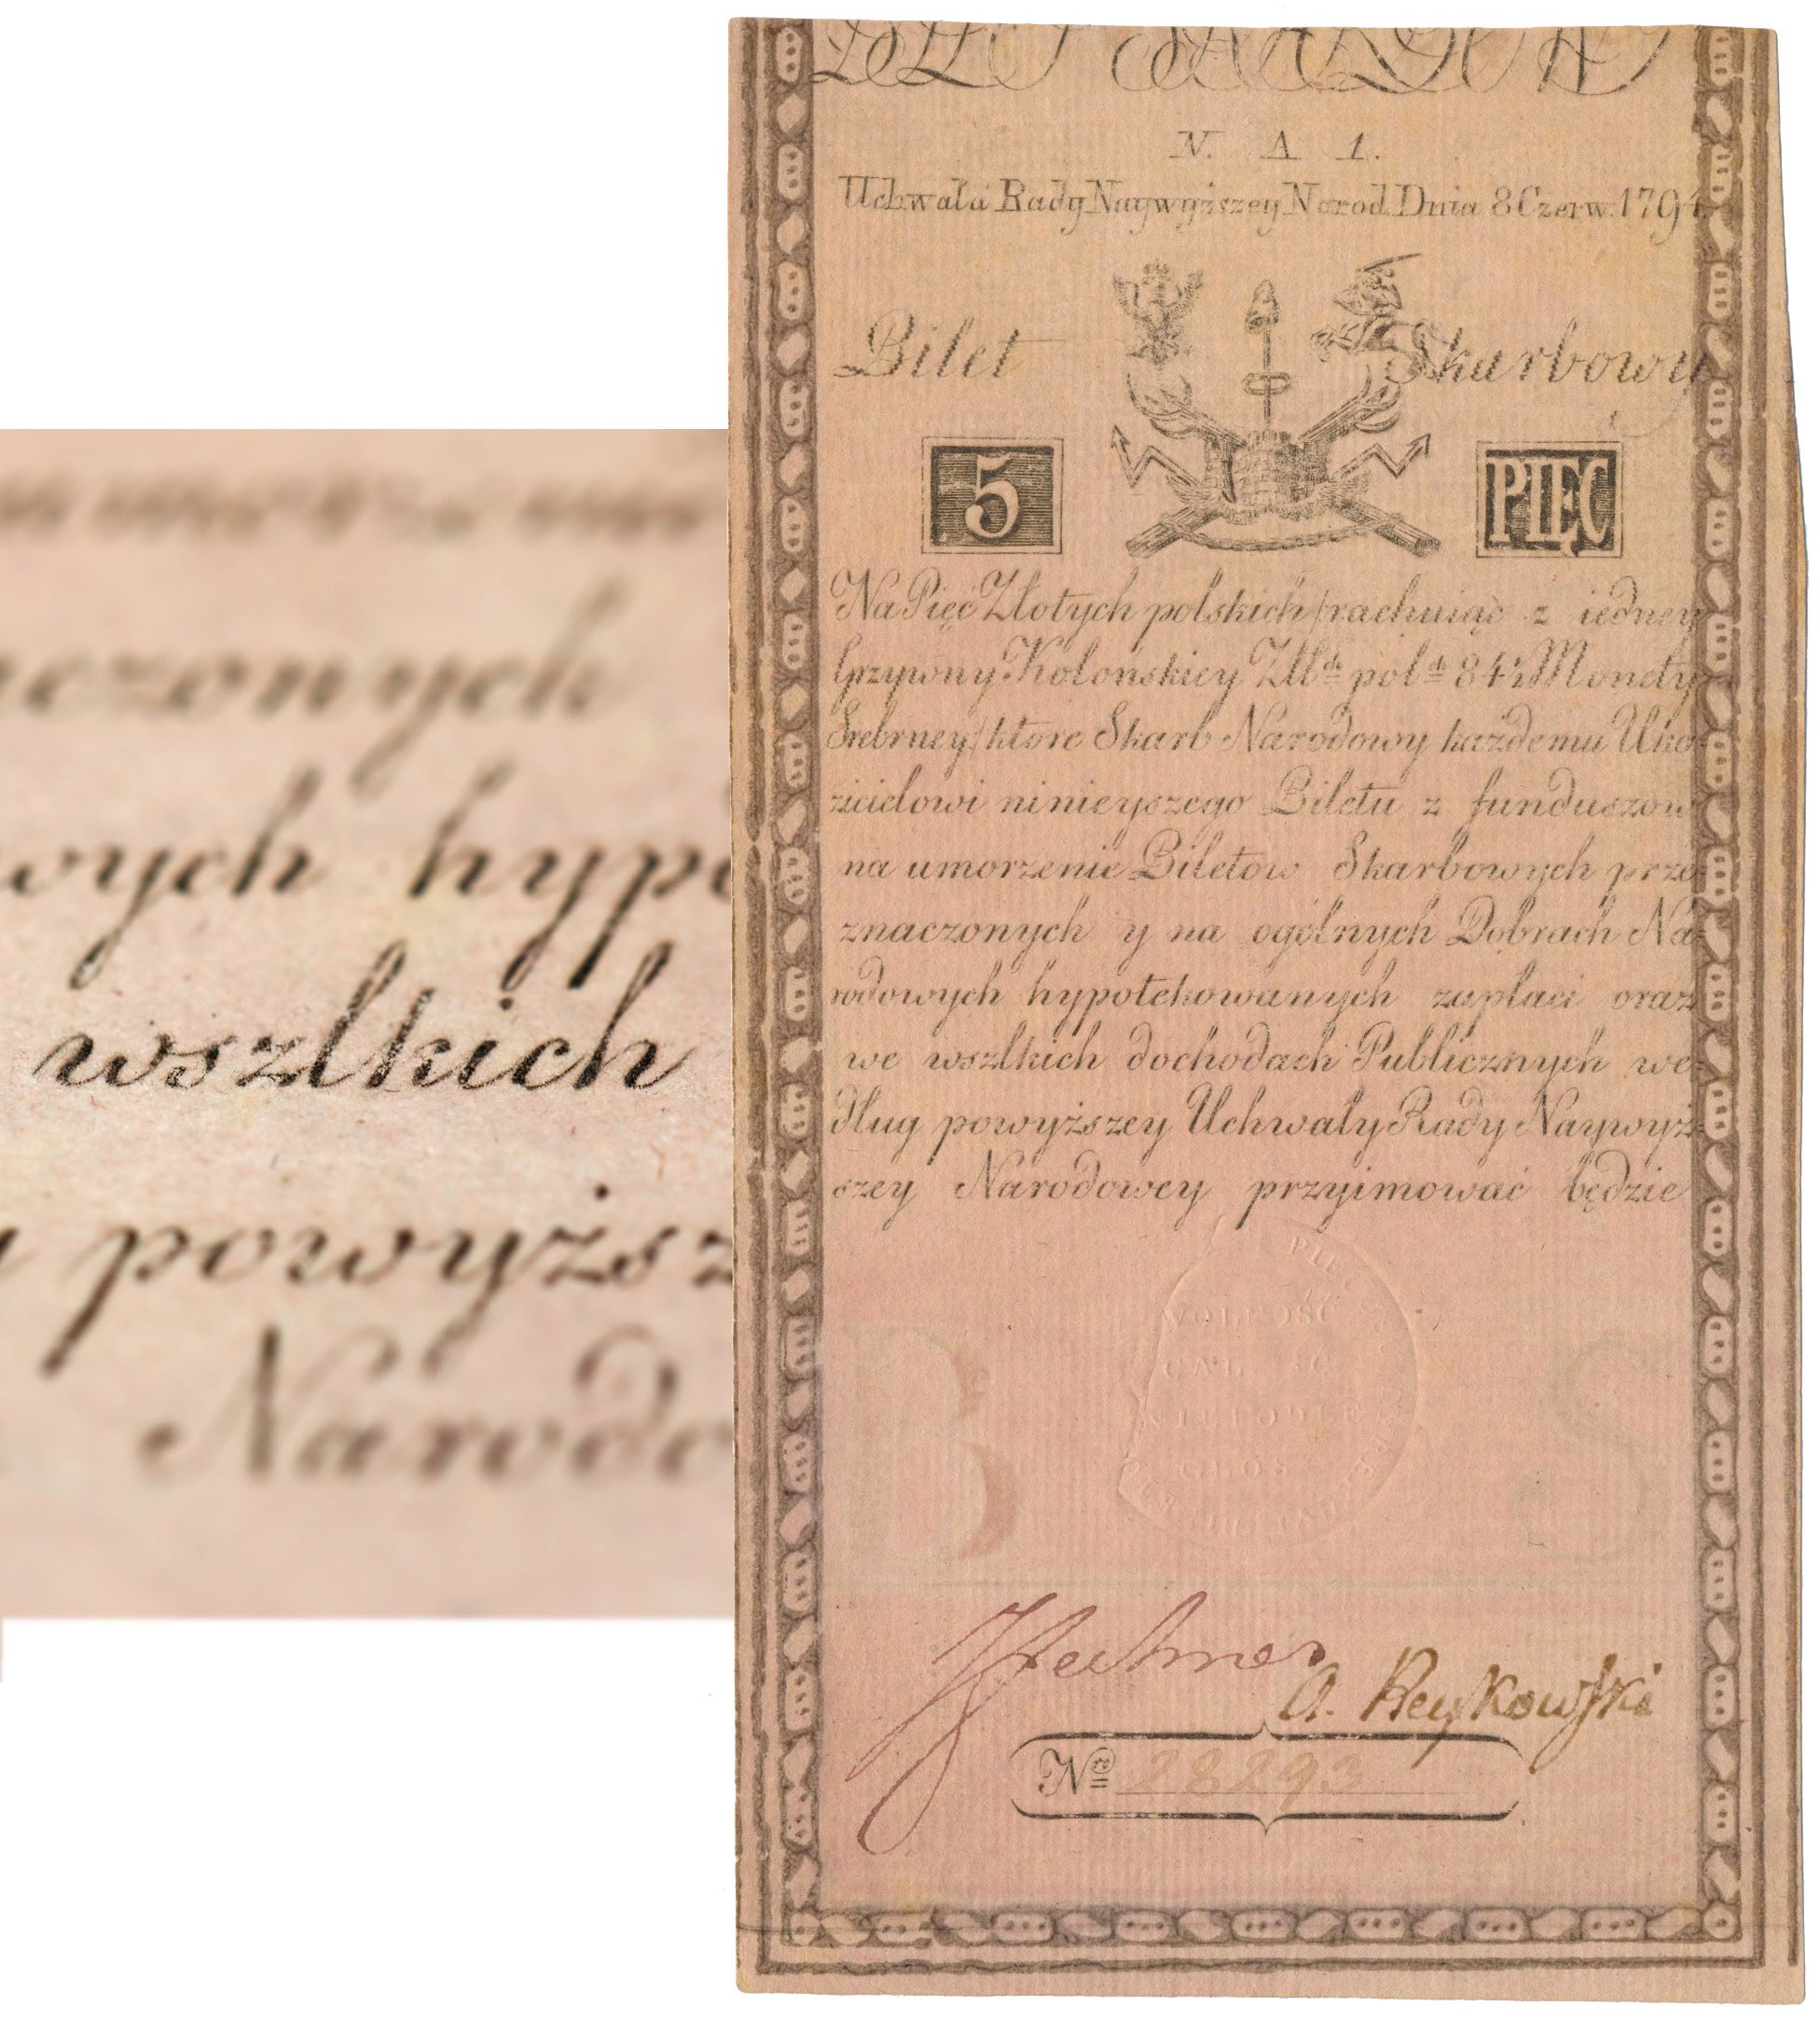 N. A 1.
Uchwała Rady Naywyższey Narod. Dnia 8 Czerw. 1794
Bilet Skarbowy
5 PIĘĆ
Na Pięć Złotych polskich/rachuiąc z iedney
Grzywny Kolońskiey Złł. pol. 84½ Monety
Srebrney/które Skarb Narodowy każdemu Uka-
zicielowi ninieyszego Biletu z funduszow
na umorzenie Biletow Skarbowych prze-
znaczonych y na ogólnych Dobrach Na-
rodowych hypotekowanych zapłaci oraz
we wszlkich dochodach Publicznych we-
dług powyższey Uchwały Rady Naywyż-
szey Narodowey przyimować będzie
WOLNOŚĆ
CAŁOŚĆ
NIEPODLE
GŁOŚĆ
A. Reykowski
Nro 28293
czonych
wych hypo
wszlkich
powyższ
Narodo